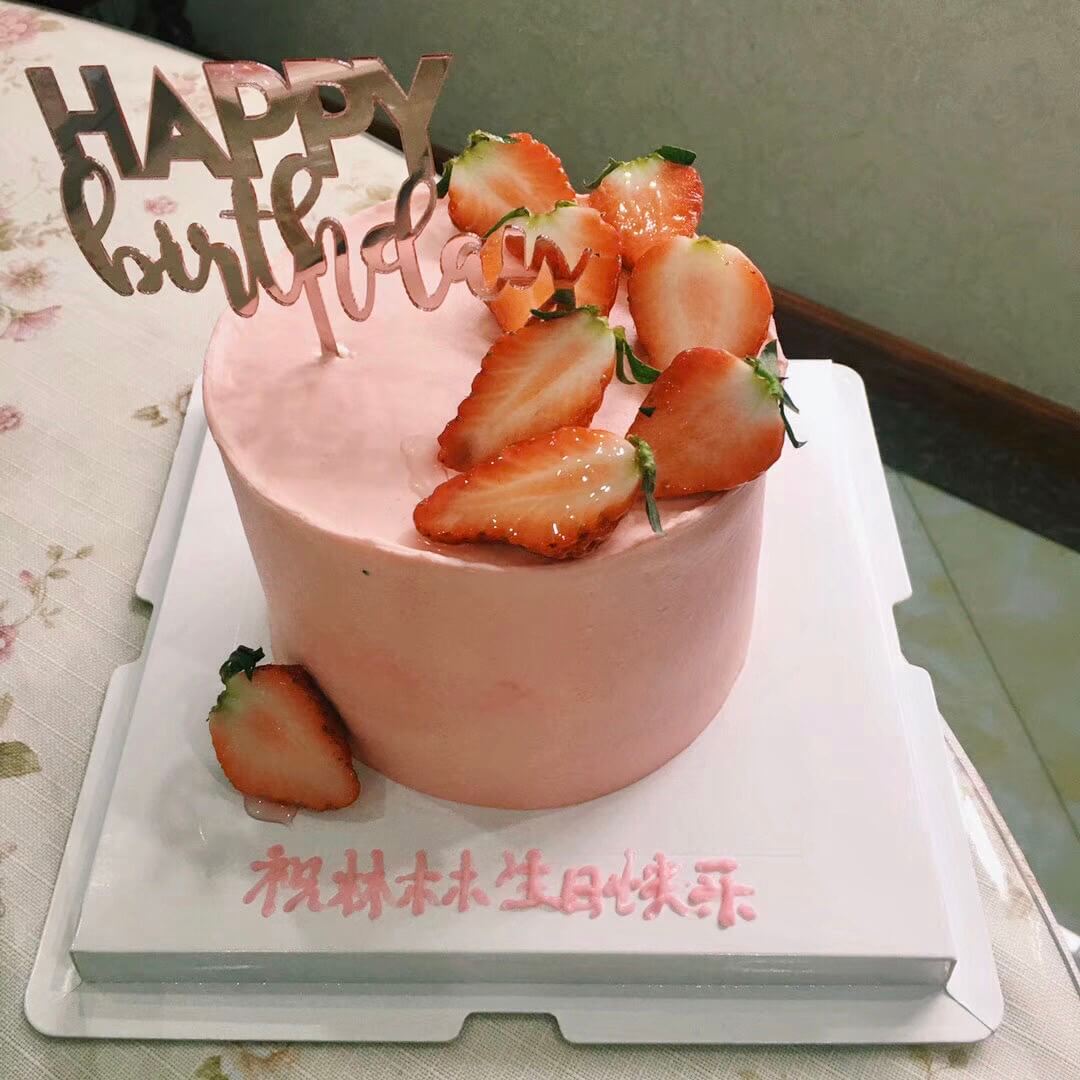 HAPPY
birthday
祝林林生日快乐